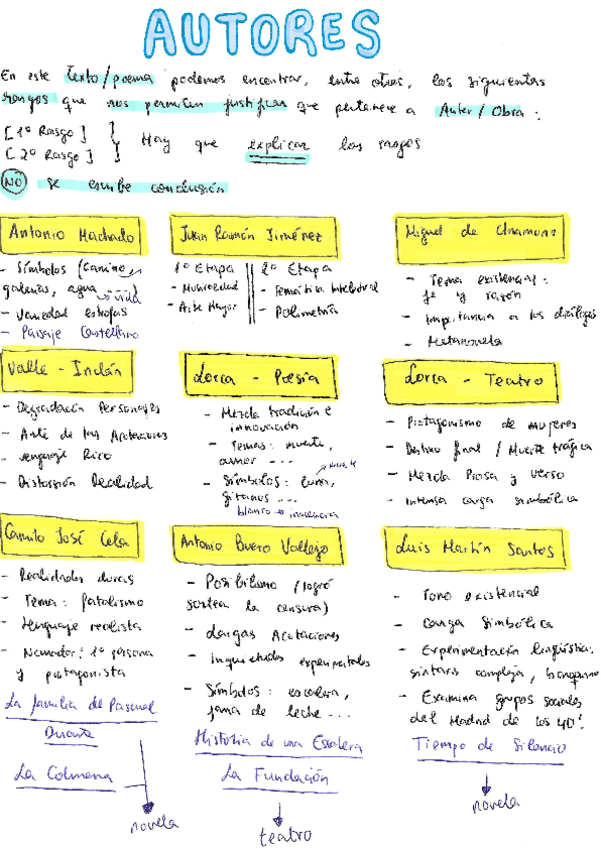 AUTORES
En este texto/poema podemos encontrar, entre otros, los siguientes
rasgos que nos permiten justificar que pertenece a Autor/Obra:
[1º Rasgo]
[2º Rasgo]
Hay que explicar los rasgos
NO se escribe conclusión
Antonio Machado
- Símbolos (camino,
galerías, agua ...)
→ vida
- Variedad estrofas
- Paisaje Castellano
Juan Ramón Jiménez
1º Etapa
- Musicalidad
- Arte Mayor
2º Etapa
- Temática Intelectual
- Polimetría
Miguel de Unamuno
- Tema existencial:
fe y razón
- Importancia a los diálogos
- Metanovela
Valle-Inclán
- Degradación Personajes
- Arte de las Acotaciones
- Lenguaje Rico
- Distorsión Realidad
Lorca - Poesía
- Mezcla tradición e
innovación
- Temas: muerte,
amor ...
- Símbolos: luna,
gitanos ...
blanco → inocencia
Lorca - Teatro
- Protagonismo de mujeres
- Destino final / Muerte trágica
- Mezcla Prosa y verso
- Intensa carga simbólica
Camilo José Cela
- Realidades duras
- Tema: fatalismo
- Lenguaje realista
- Narrador: 1º persona
y protagonista
La familia de Pascual
Duarte
La Colmena
novela
Antonio Buero Vallejo
- Posibilismo (logró
sortear la censura)
- Largas Acotaciones
- Inquietudes experimentales
- Símbolos: escalera,
jarra de leche ...
Historia de una Escalera
La Fundación
teatro
Luis Martín Santos
- Tono existencial
- Carga Simbólica
- Experimentación lingüística:
sintaxis compleja,
- Examina grupos sociales
del Madrid de los 40'.
Tiempo de Silencio
novela